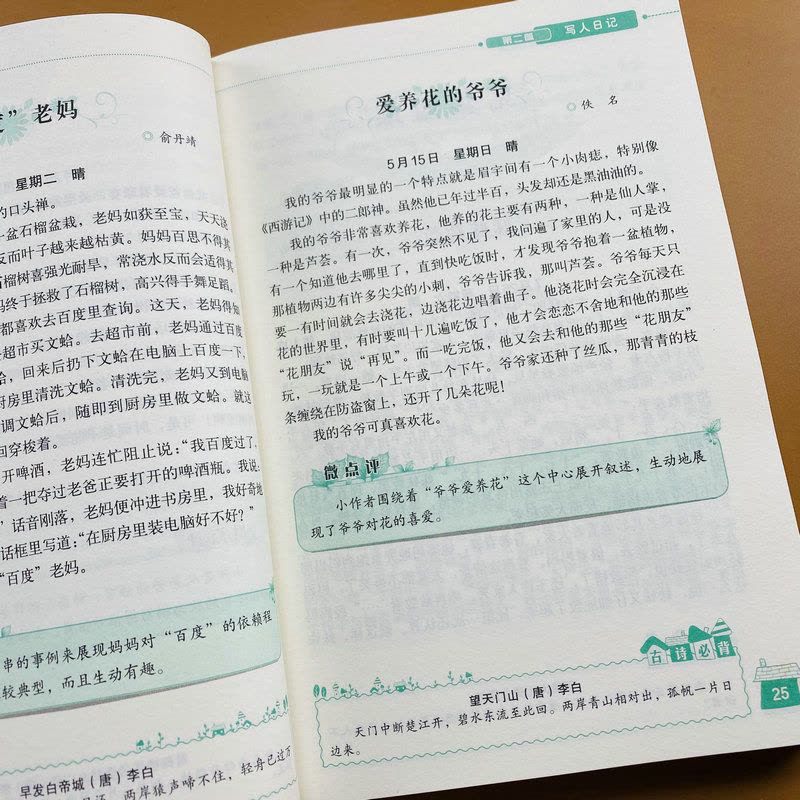 ”老妈
俞丹靖
星期二 晴
的口头禅。
一盆石榴盆栽，老妈如获至宝，天天浇
反而叶子越来越枯黄。妈妈百思不得其
石榴树喜强光耐旱，常浇水反而会适得其
妈终于拯救了石榴树，高兴得手舞足蹈。
都喜欢去百度里查询。这天，老妈得知
去超市买文蛤。去超市前，老妈通过百度
蛤，回来后扔下文蛤在电脑上百度一下，
厨房里清洗文蛤。清洗完，老妈又到电脑
调文蛤后，随即到厨房里做文蛤。就这
回穿梭着。
开啤酒，老妈连忙阻止说：“我百度过了，
着一把夺过老爸正要打开的啤酒瓶。我说：
”话音刚落，老妈便冲进书房里，我好奇地
话框里写道：“在厨房里装电脑好不好？”
“百度”老妈。
串的事例来展现妈妈对“百度”的依赖程
较典型，而且生动有趣。
早发白帝城（唐）李白
两岸猿声啼不住，轻舟已过万
第二篇 写人日记
爱养花的爷爷
佚 名
5月15日 星期日 晴
我的爷爷最明显的一个特点就是眉宇间有一个小肉痣，特别像
《西游记》中的二郎神。虽然他已年过半百，头发却还是黑油油的。
我的爷爷非常喜欢养花，他养的花主要有两种，一种是仙人掌，
一种是芦荟。有一次，爷爷突然不见了，我问遍了家里的人，可是没
有一个知道他去哪里了，直到快吃饭时，才发现爷爷抱着一盆植物，
那植物两边有许多尖尖的小刺，爷爷告诉我，那叫芦荟。爷爷每天只
要一有时间就会去浇花，边浇花边唱着曲子。他浇花时会完全沉浸在
花的世界里，有时要叫十几遍吃饭了，他才会恋恋不舍地和他的那些
“花朋友”说“再见”。而一吃完饭，他又会去和他的那些“花朋友”
玩，一玩就是一个上午或一个下午。爷爷家还种了丝瓜，那青青的枝
条缠绕在防盗窗上，还开了几朵花呢！
我的爷爷可真喜欢花。
微点评
小作者围绕着“爷爷爱养花”这个中心展开叙述，生动地展
现了爷爷对花的喜爱。
古诗必背
望天门山（唐）李白
天门中断楚江开，碧水东流至此回。两岸青山相对出，孤帆一片日
边来。
25